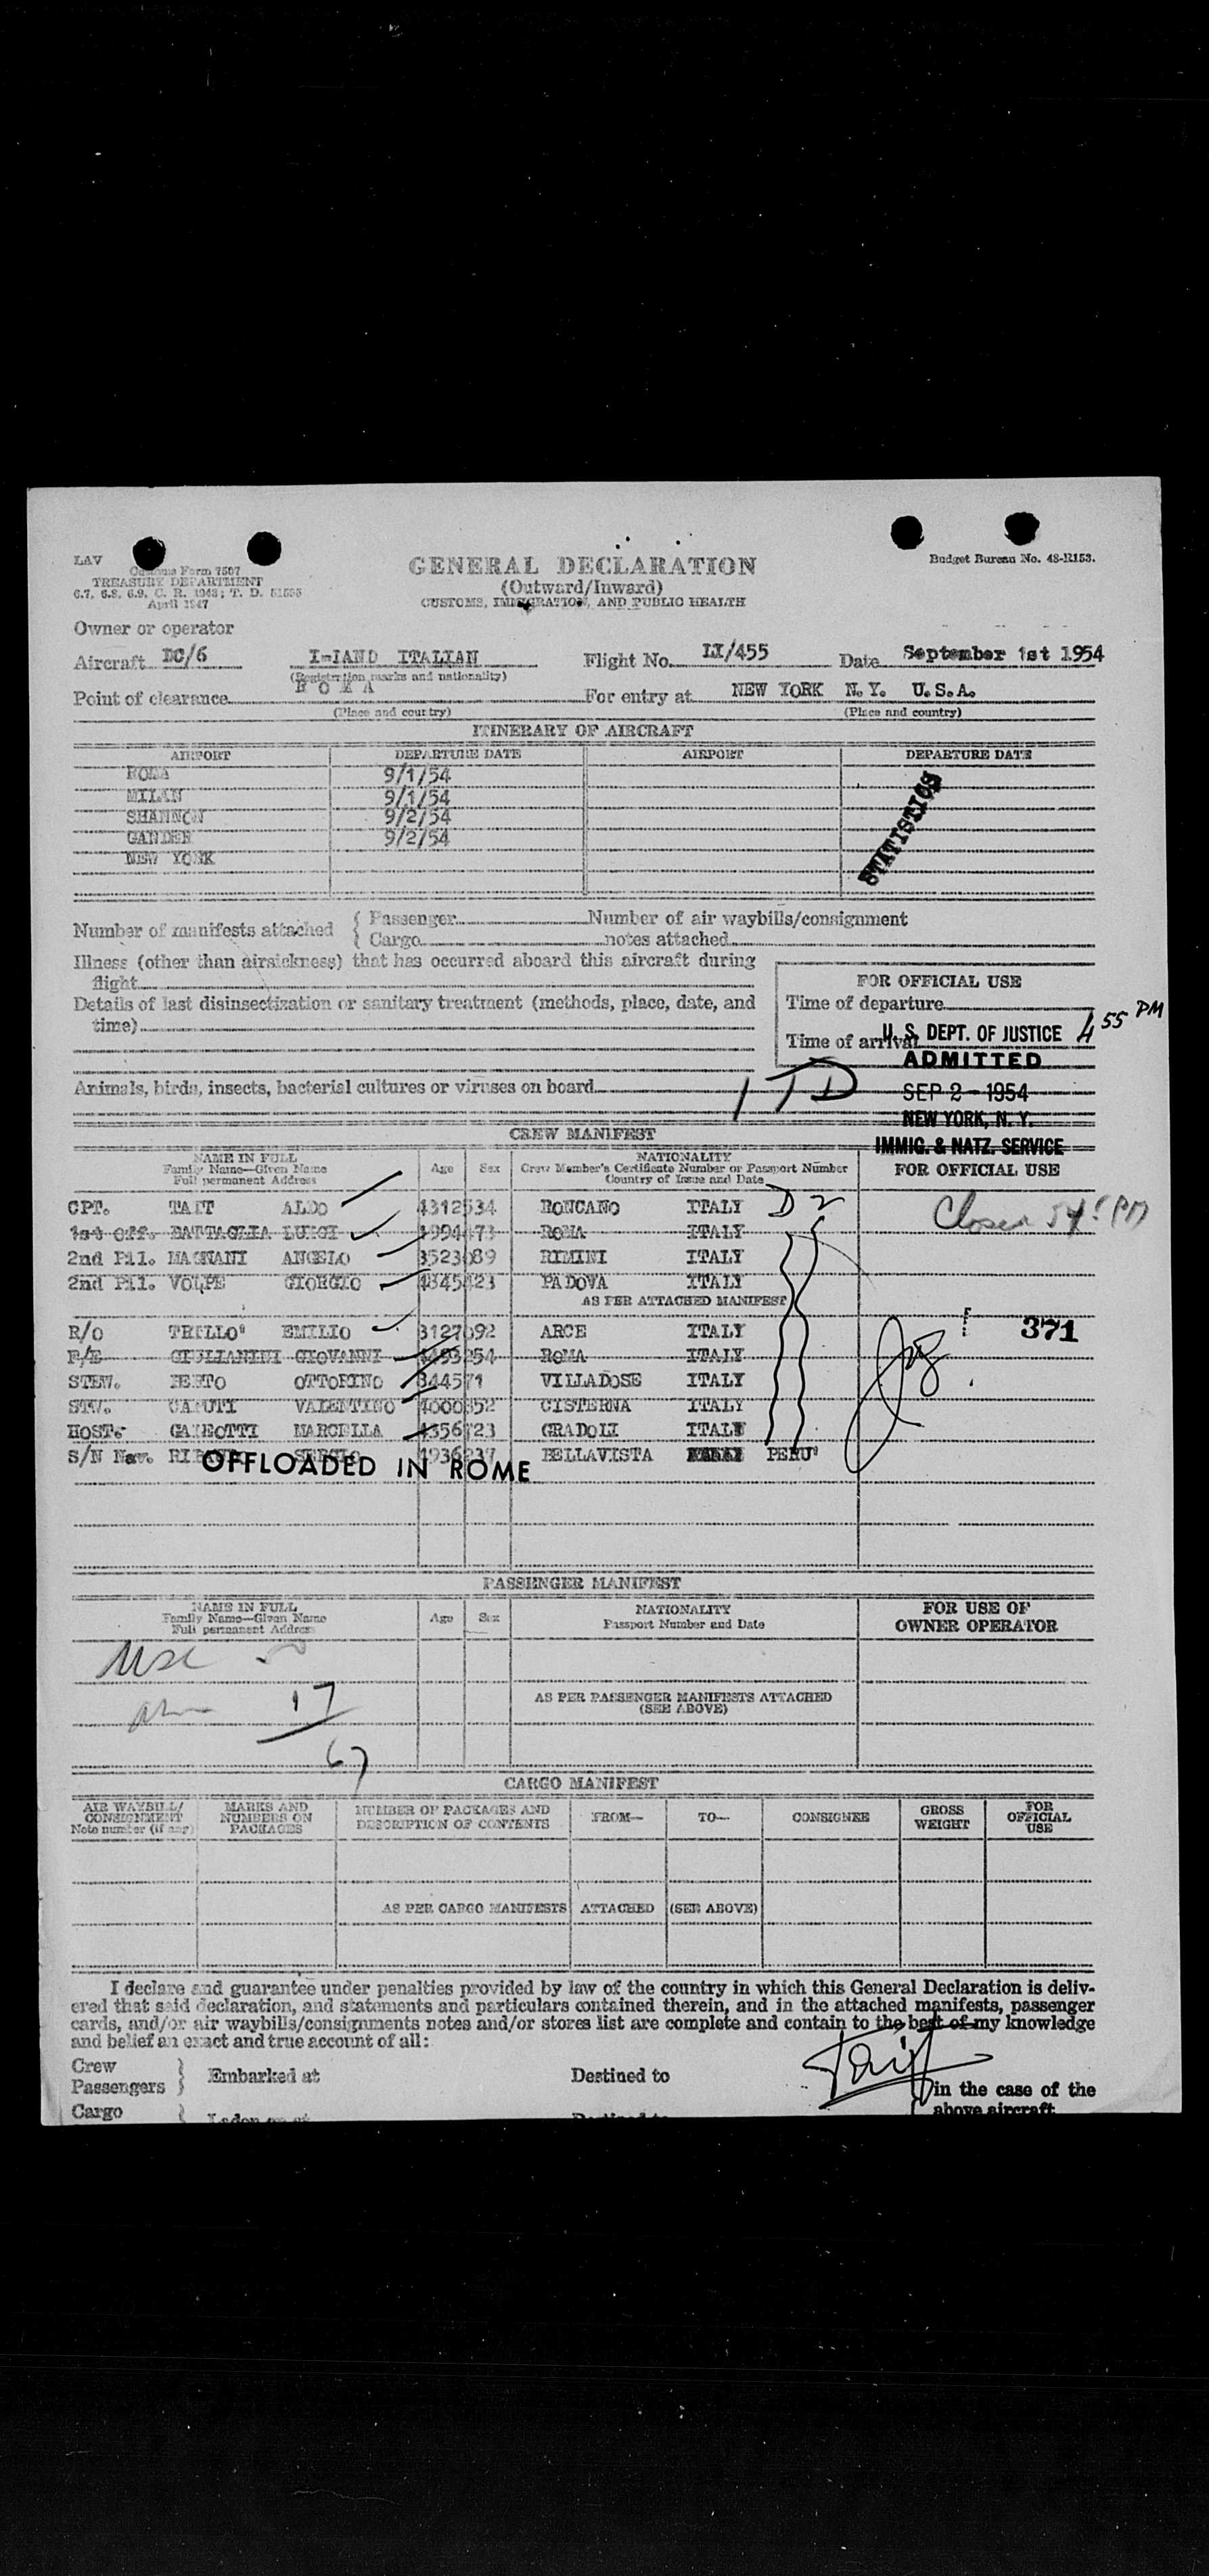 LAV
Customs Form 7507
TREASURY DEPARTMENT
6.7, 6.8, 6.9, C. R. 1943; T. D.
April 1947
GENERAL DECLARATION
(Outward/Inward)
CUSTOMS, IMMIGRATION, AND PUBLIC HEALTH
Budget Bureau No. 48-R153.
Owner or operator
Aircraft DC/6 I-IAND ITALIAN Flight No. LI/455 Date September 1st 1954
(Registration marks and nationality)
Point of clearance ROMA For entry at NEW YORK N.Y. U.S.A.
(Place and country) (Place and country)
ITINERARY OF AIRCRAFT
AIRPORT DEPARTURE DATE AIRPORT DEPARTURE DATE
ROMA 9/1/54
MILAN 9/1/54
SHANNON 9/2/54
GANDER 9/2/54
NEW YORK
STATISTICS
Number of manifests attached { Passenger Number of air waybills/consignment
{ Cargo notes attached
Illness (other than airsickness) that has occurred aboard this aircraft during
flight
Details of last disinsectization or sanitary treatment (methods, place, date, and
time)
FOR OFFICIAL USE
Time of departure
Time of arrival 4 55 PM
U. S. DEPT. OF JUSTICE
ADMITTED
SEP 2 - 1954
NEW YORK, N. Y.
IMMIG. & NATZ. SERVICE
Animals, birds, insects, bacterial cultures or viruses on board 1 TD
CREW MANIFEST
NAME IN FULL
Family Name—Given Name
Full permanent Address
Age Sex
NATIONALITY
Crew Member's Certificate Number or Passport Number
Country of Issue and Date
FOR OFFICIAL USE
CPT. TAIT ALDO 4312534 RONCANO ITALY D2
Closed PM
1st Off. BATTAGLIA LUIGI ROMA ITALY
2nd Pil. MAGNANI ANGELO RIMINI ITALY
2nd Pil. VOLPE GIORGIO PADOVA ITALY
AS PER ATTACHED MANIFEST
R/O TRILLO' EMILIO ARCE ITALY 371
F/E GIULIANINI GIOVANNI ROMA ITALY
STEW. OTTORINO VILLADOSE ITALY
STW. CAPUTI VALENTINO CISTERNA ITALY
HOST. GALEOTTI MARCELLA GRADOLI ITALY
S/N Nav. BELLAVISTA PERU'
OFFLOADED IN ROME
PASSENGER MANIFEST
NAME IN FULL
Family Name—Given Name
Full permanent Address
Age Sex
NATIONALITY
Passport Number and Date
FOR USE OF
OWNER OPERATOR
17
67
AS PER PASSENGER MANIFESTS ATTACHED
(SEE ABOVE)
CARGO MANIFEST
AIR WAYBILL/
CONSIGNMENT
Note number (if any)
MARKS AND
NUMBERS ON
PACKAGES
NUMBER OF PACKAGES AND
DESCRIPTION OF CONTENTS
FROM— TO— CONSIGNEE
GROSS
WEIGHT
FOR
OFFICIAL
USE
AS PER CARGO MANIFESTS ATTACHED (SEE ABOVE)
I declare and guarantee under penalties provided by law of the country in which this General Declaration is deliv-
ered that said declaration, and statements and particulars contained therein, and in the attached manifests, passenger
cards, and/or air waybills/consignments notes and/or stores list are complete and contain to the best of my knowledge
and belief an exact and true account of all:
Crew
Passengers } Embarked at Destined to
Cargo
in the case of the
above aircraft